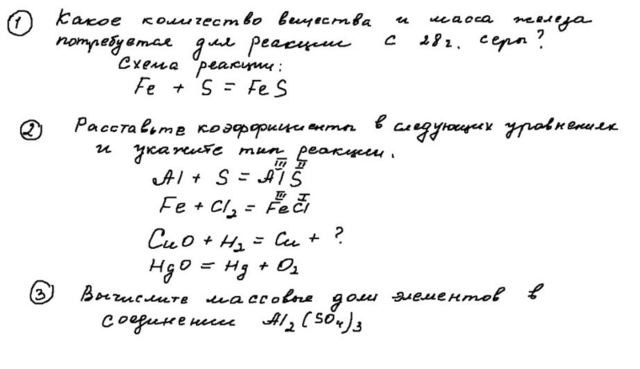 ① Какое количество вещества и масса железа
потребуется для реакции с 28 г. серы?
Схема реакции:
Fe + S = FeS
② Расставьте коэффициенты в следующих уравнениях
и укажите тип реакции.
III II
Al + S = AlS
III I
Fe + Cl₂ = FeCl
CuO + H₂ = Cu + ?
HgO = Hg + O₂
③ Вычислите массовые доли элементов в
соединении Al₂(SO₄)₃